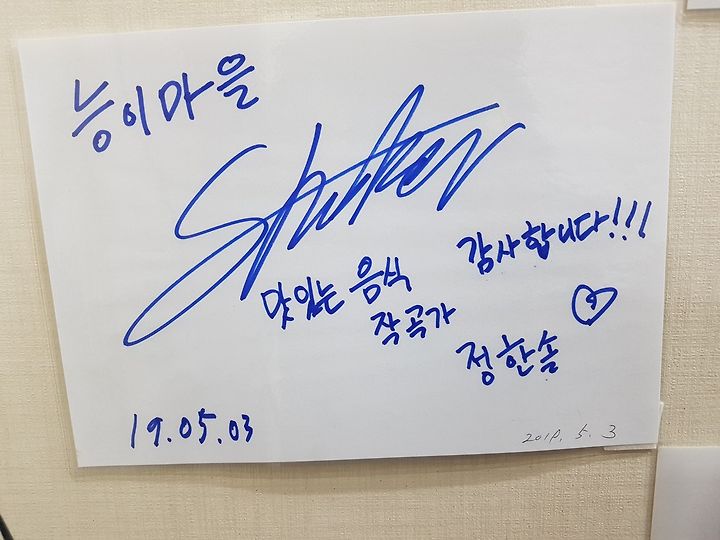 능이마을
맛있는 음식 감사합니다!!!
작곡가 정한솜
19.05.03
2019. 5. 3